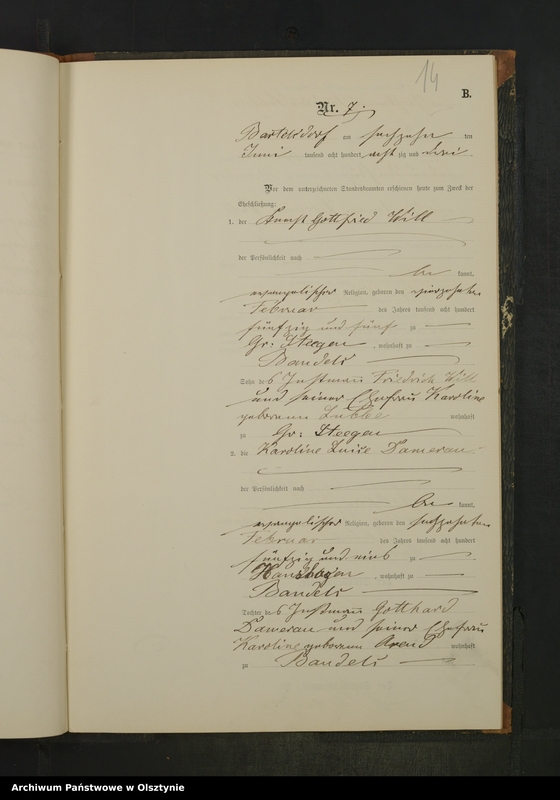 14
B.
Nr. 7.
Bartelsdorf am sechzehn ten
Juni tausend acht hundert acht zig und drei
Vor dem unterzeichneten Standesbeamten erschienen heute zum Zweck der
Eheschließung:
1. der Knecht Gottfried Will
der Persönlichkeit nach
be kannt,
evangelischer Religion, geboren den vierzehnten
Februar des Jahres tausend acht hundert
fünfzig und fünf zu
Gr: Steegen, wohnhaft zu
Bandels
Sohn des Instmann Friedrich Will
und seiner Ehefrau Karoline
geborenen Lubbe wohnhaft
zu Gr: Steegen
2. die Karoline Luise Damerau
der Persönlichkeit nach
be kannt,
evangelischer Religion, geboren den sechzehnten
Februar des Jahres tausend acht hundert
fünfzig und eins zu
Hanshagen, wohnhaft zu
Bandels
Tochter des Instmann Gotthard
Damerau und seiner Ehefrau
Karoline geborenen Arend wohnhaft
zu Bandels
Archiwum Państwowe w Olsztynie